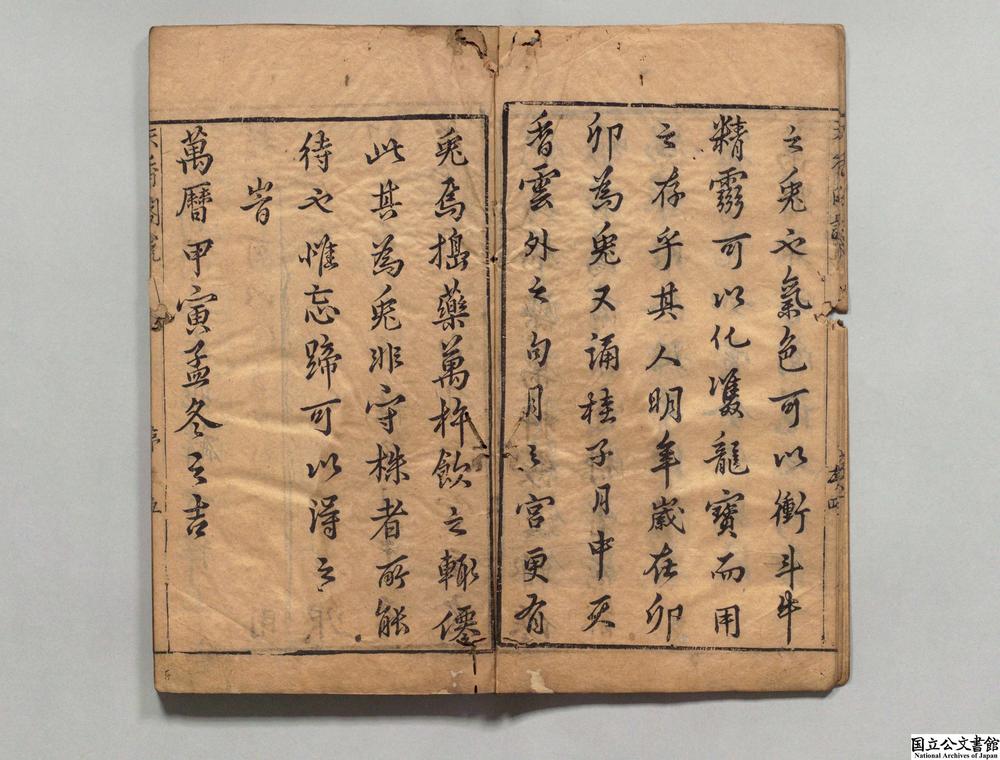 之兎也氣色可以衝斗牛
精靈可以化䨇龍寶而用
之存乎其人明年歲在卯
卯為兎又誦桂子月中天
香雲外之句月之宮更有
兎焉搗藥萬杵飲之輙僊
此其為兎非守株者所能
待也惟忘蹄可以得之
旹
萬曆甲寅孟冬之吉
国立公文書館
National Archives of Japan